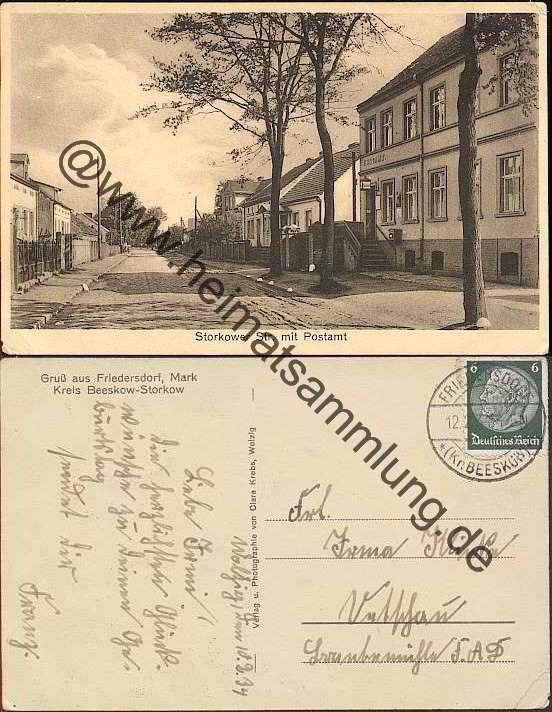 POSTAMT
Storkower Str. mit Postamt
@www.heimatsammlung.de
Gruß aus Friedersdorf, Mark
Kreis Beeskow-Storkow
Verlag u. Photographie von Clara Krebs, Wolzig
6 6
Deutsches Reich
FRIEDERSDORF
12.
(Kr. BEESKOW)
Wolzig, den 12.2.34
Liebe Irmi!
Die herzlichsten Glück-
wünsche zu Deinem Ge-
burtstag
sendet Dir
Franz.
Frl.
Irma
Vetschau
F.A.D